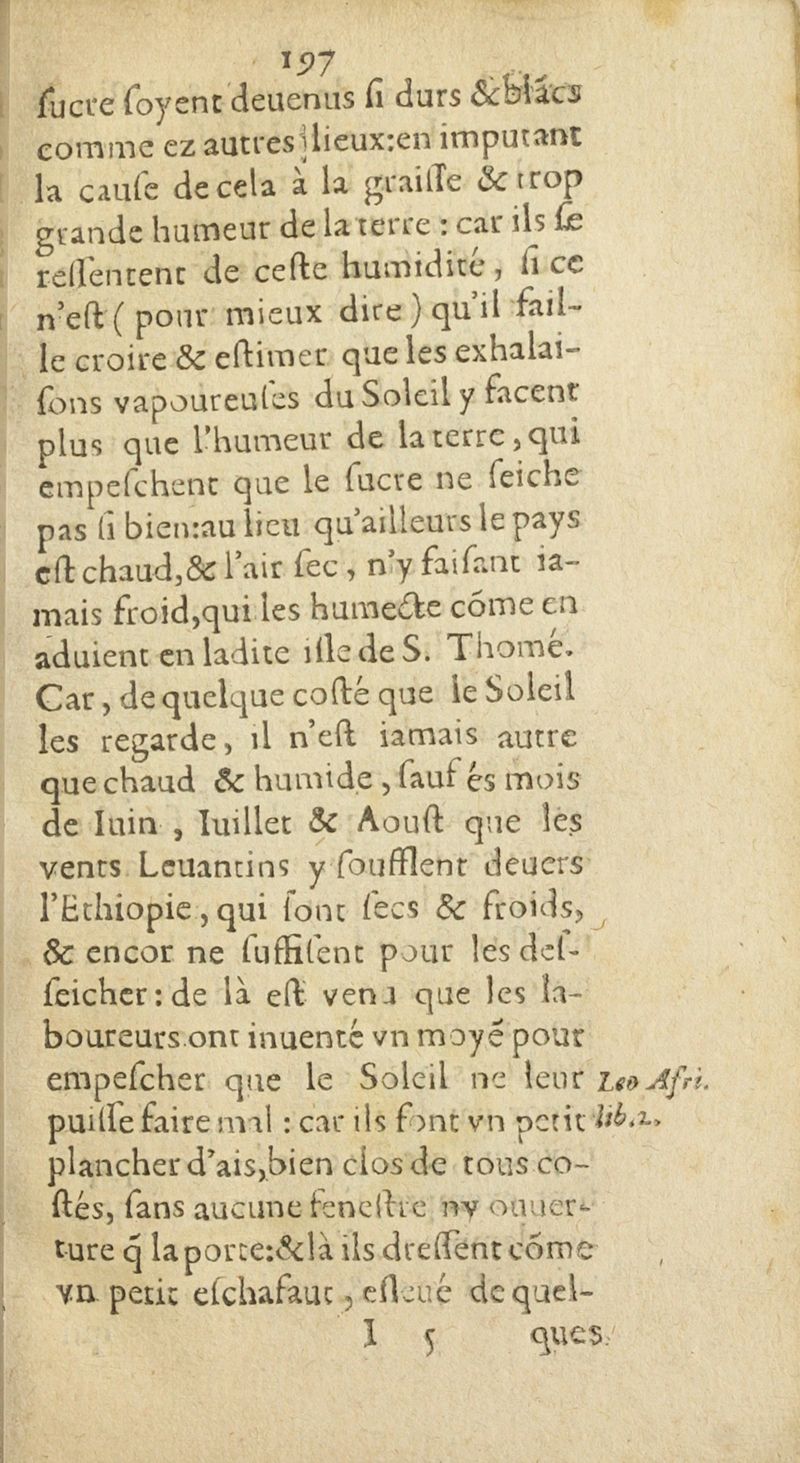 197
ſucre ſoyent deuenus ſi durs & blãcs
comme ez autres lieux: en imputant
la cauſe de cela à la graiſſe & trop
grande humeur de la terre : car ils ſe
reſſentent de ceſte humidité, ſi ce
n'eſt ( pour mieux dire ) qu'il fail-
le croire & eſtimer que les exhalai-
ſons vapoureuſes du Soleil y facent
plus que l'humeur de la terre, qui
empeſchent que le ſucre ne ſeiche
pas ſi bien: au lieu qu'ailleurs le pays
eſt chaud, & l'air ſec, n'y faiſant ia-
mais froid, qui les humecte cõme en
aduient en ladite iſle de S. Thomé.
Car, de quelque coſté que le Soleil
les regarde, il n'eſt iamais autre
que chaud & humide, ſauf és mois
de Iuin , Iuillet & Aouſt que les
vents Leuantins y ſoufflent deuers
l'Ethiopie, qui ſont ſecs & froids,
& encor ne ſuffiſent pour les deſ-
ſeicher: de là eſt venu que les la-
boureurs ont inuenté vn moyẽ pour
empeſcher que le Soleil ne leur Leo Afri.
puiſſe faire mal : car ils font vn petit lib.2.
plancher d'ais, bien clos de tous co-
ſtés, ſans aucune feneſtre ny ouuer-
ture q̃ la porte: & là ils dreſſent cõme
vn petit eſchafaut, eſleué de quel-
I 5 ques